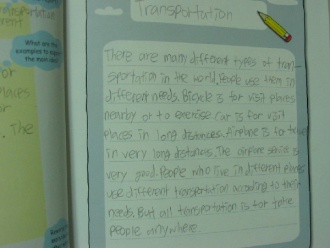 Transportation
There are many different types of tran-
sportation in the world. People use them in
different needs. Bicycle is for visit places
nearby or to exercise. Car is for visit
places in long distances. Airplane is for
in very long distances. The airplane service is
very good. People who live in different places
use different transportation according to their
needs. But all transportation is for take
people anywhere.
What are
examples to support
the main
or
places
or
. The